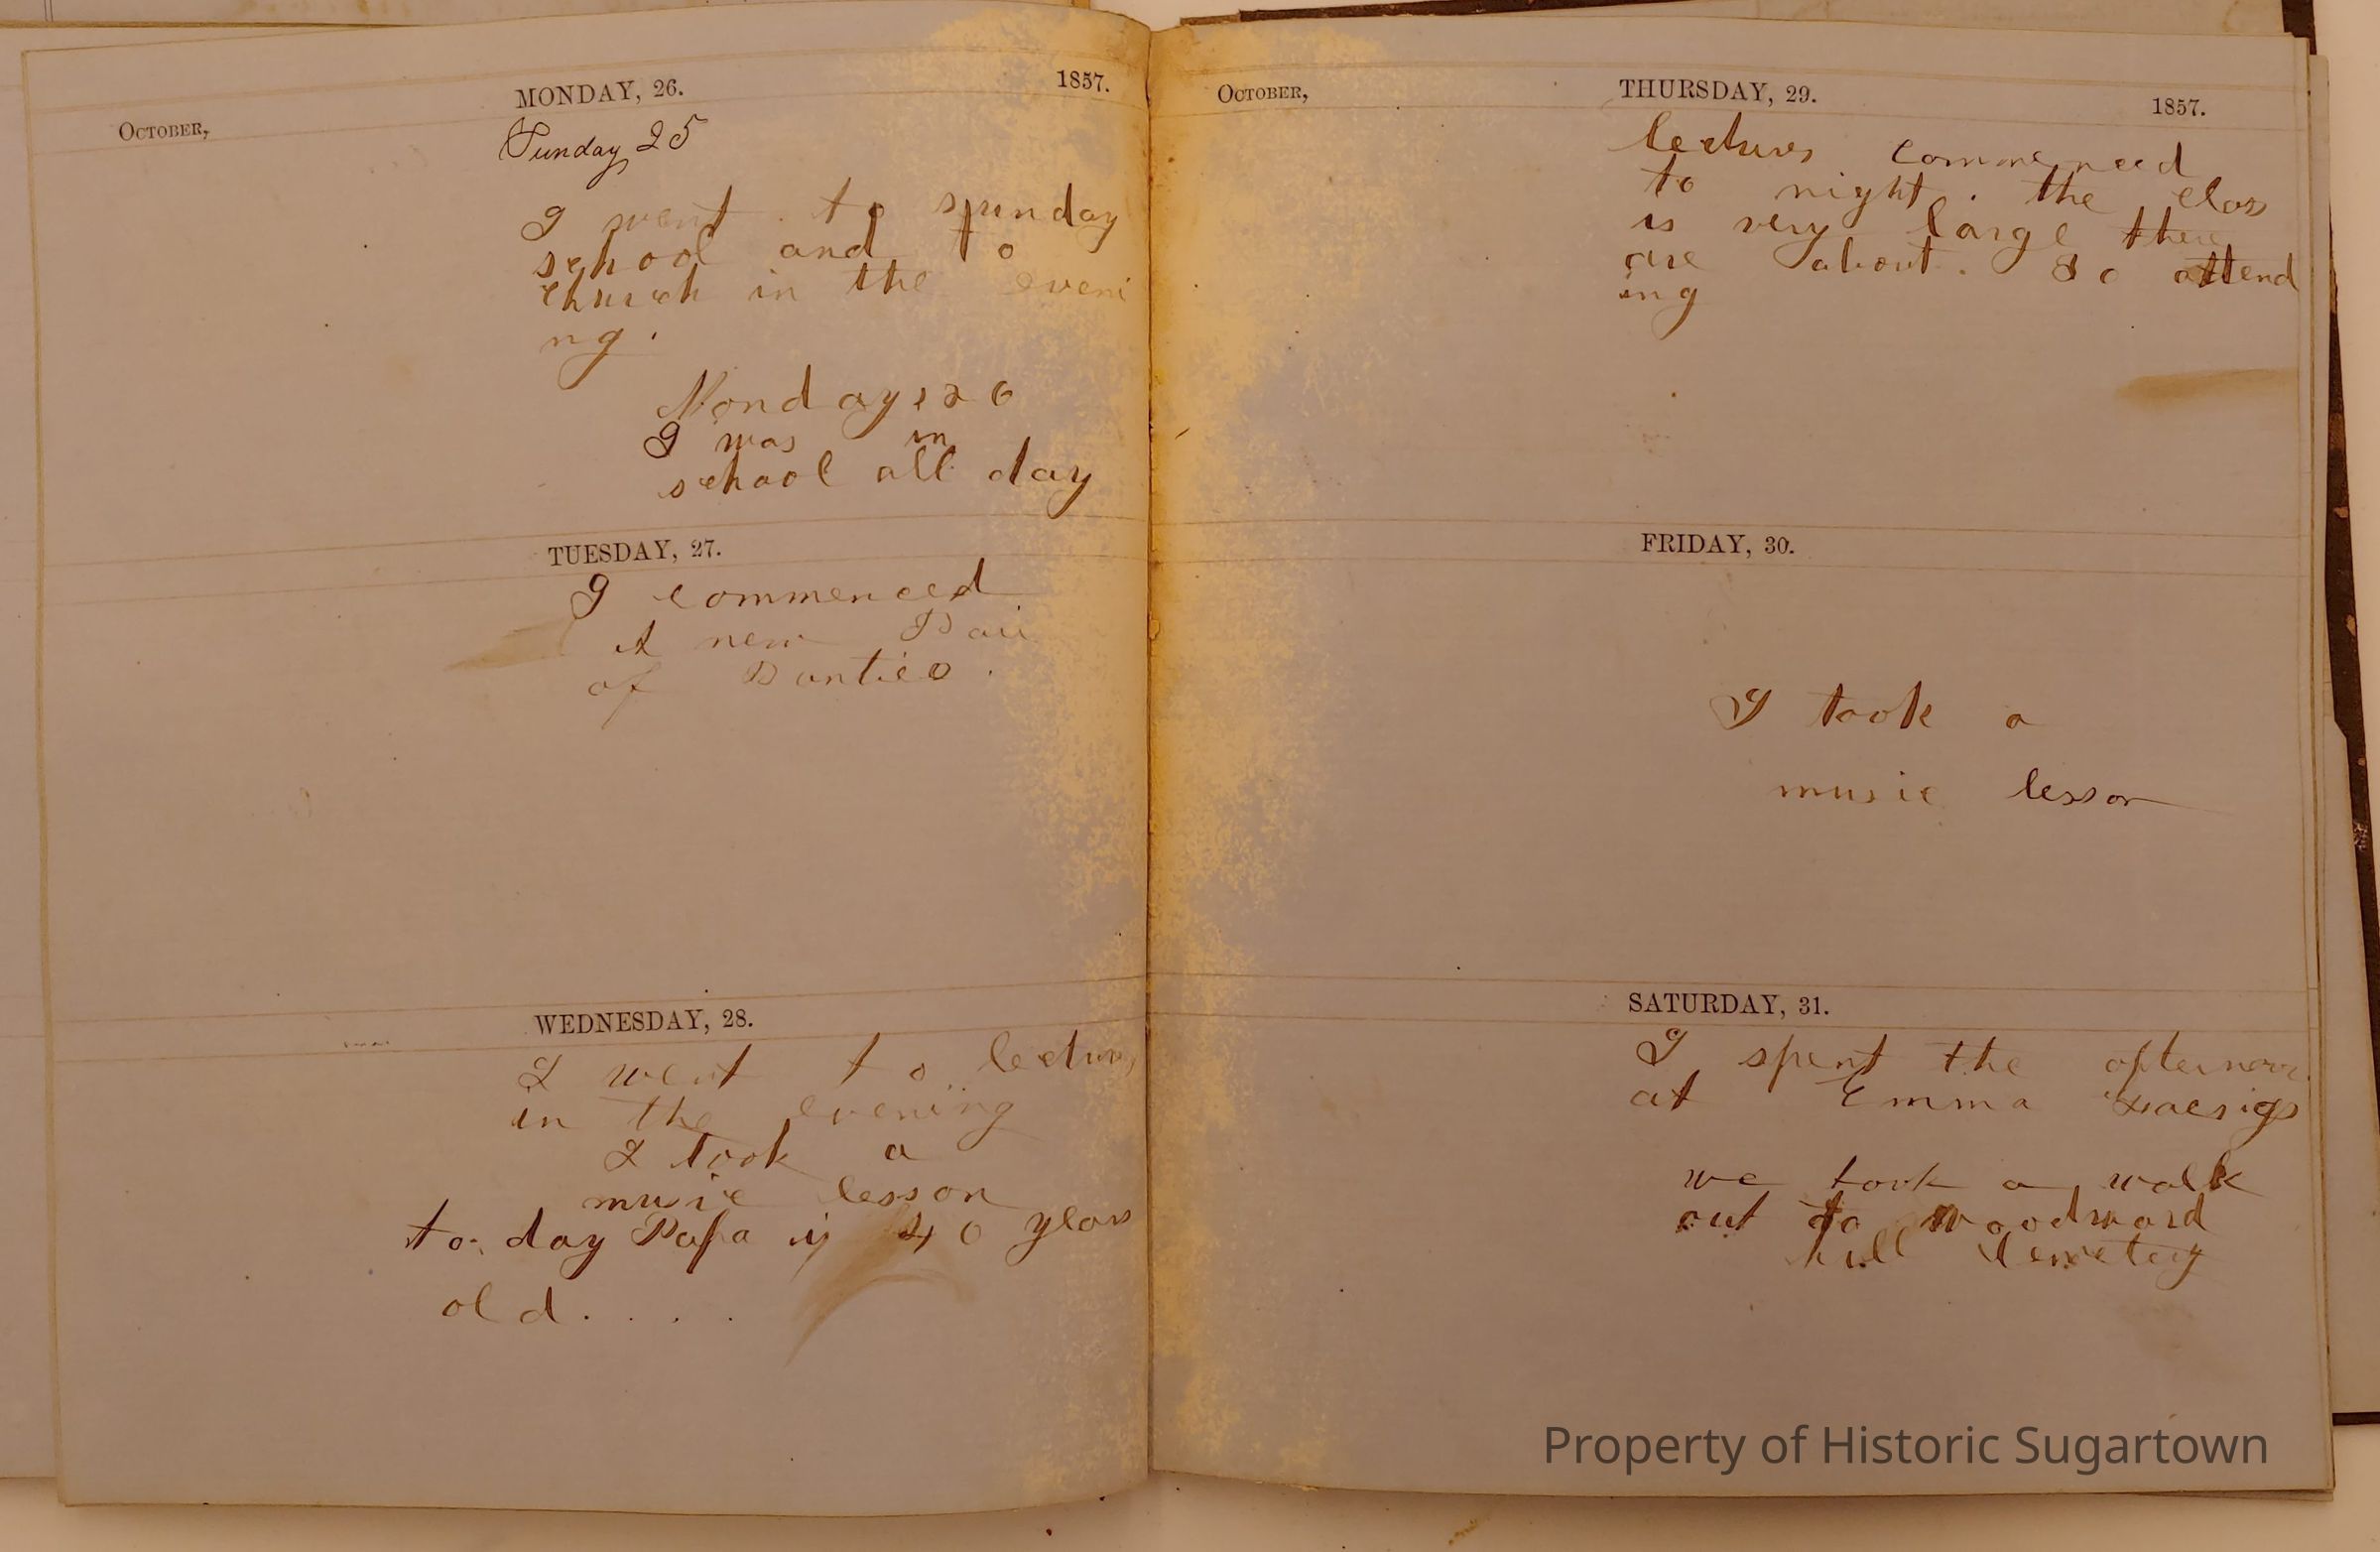 October,
MONDAY, 26.
1857.
Sunday 25
I went to sunday
school and to
church in the eveni
ng.
Monday 26
I was in
school all day
TUESDAY, 27.
I commenced
A new Pair
of Panties.
WEDNESDAY, 28.
I went to lecture
in the evening
I took a
music lesson
to day Papa is 40 years
old. . . .
October,
THURSDAY, 29.
1857.
lectures commenced
to night. the class
is very large there
are about. 80 attend
ing
FRIDAY, 30.
I took a
music lesson
SATURDAY, 31.
I spent the afternoon
at Emma
we took a walk
out to woodward
hill Cemetery
Property of Historic Sugartown